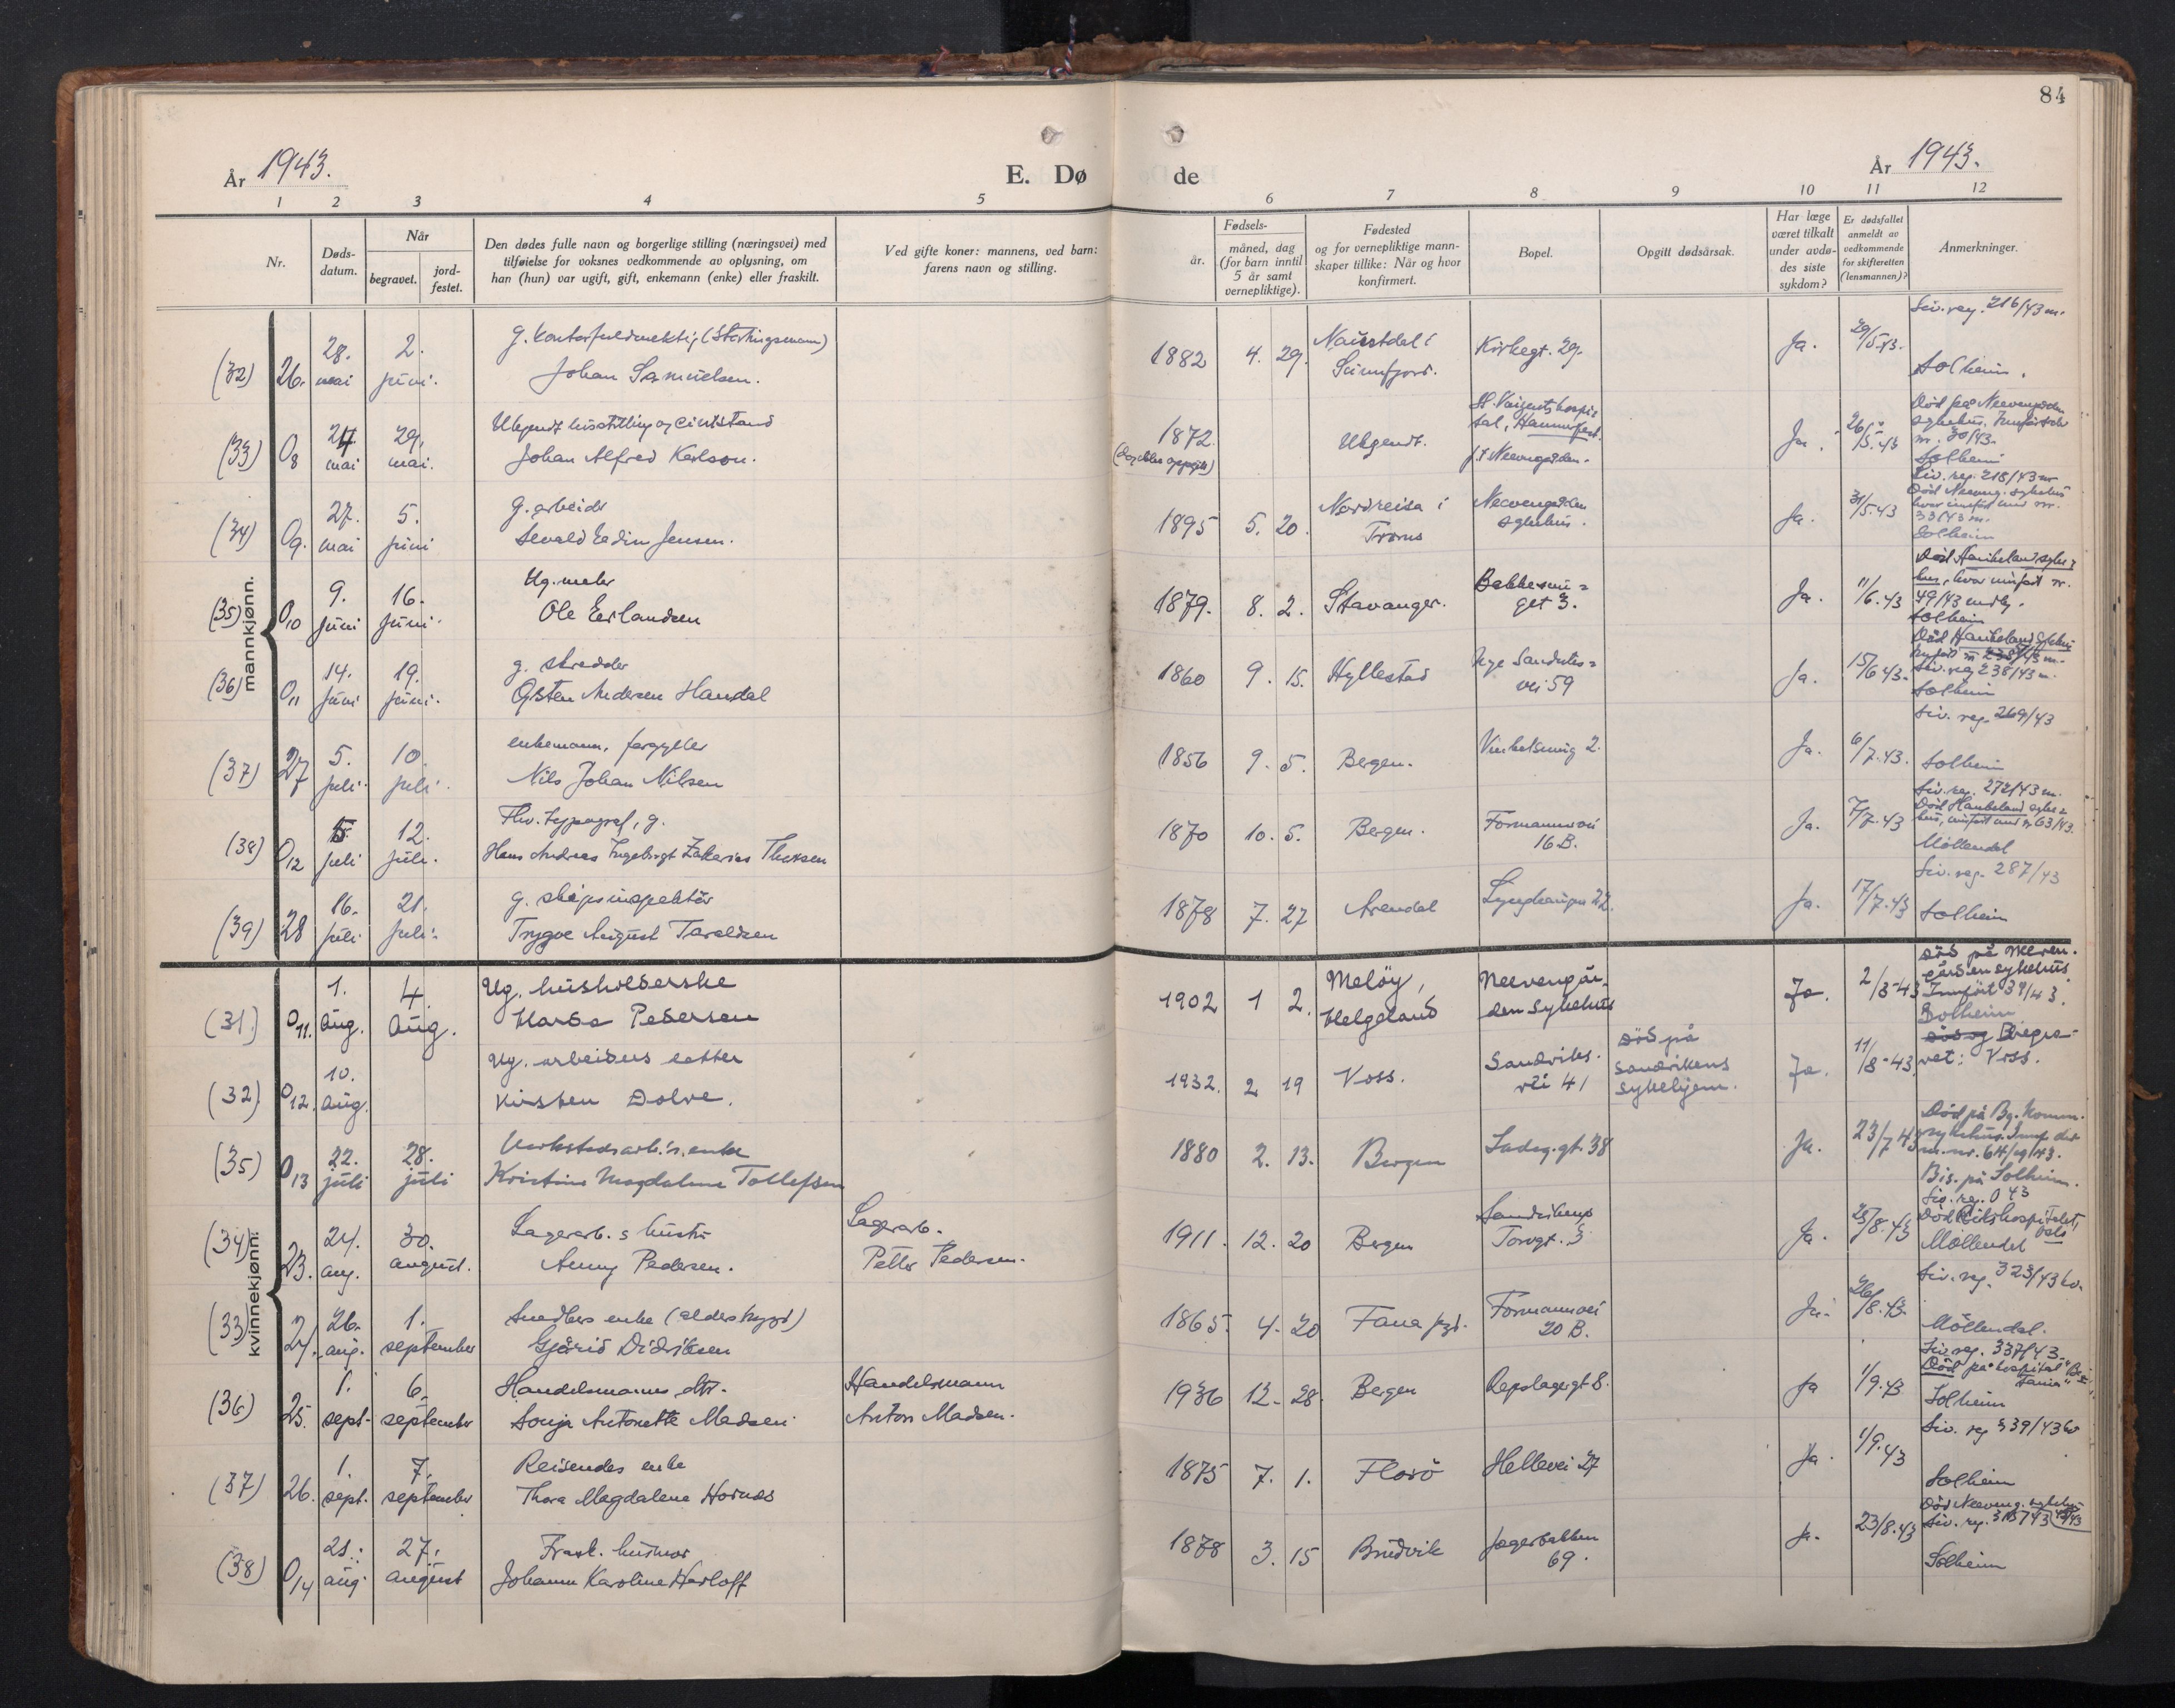 84
År 1943.
E. Dø
de
År 1943.
1 2 3 4 5 6 7 8 9 10 11 12
Nr.
Døds-
datum.
Når
begravet.
jord-
festet.
Den dødes fulle navn og borgerlige stilling (næringsvei) med
tilføielse for voksnes vedkommende av oplysning, om
han (hun) var ugift, gift, enkemann (enke) eller fraskilt.
Ved gifte koner: mannens, ved barn:
farens navn og stilling.
Fødsels-
år.
måned, dag
(for barn inntil
5 år samt
vernepliktige).
Fødested
og for vernepliktige mann-
skaper tillike: Når og hvor
konfirmert.
Bopel.
Opgitt dødsårsak.
Har læge
været tilkalt
under avdø-
des siste
sykdom?
Er dødsfallet
anmeldt av
vedkommende
for skifteretten
(lensmannen)?
Anmerkninger.
mannkjønn.
(32) 26. 28. mai 2. juni.
g. kontorfuldmektig (Stortingsmann)
Johan Samuelsen.
1882 4. 29. Naustdal i
Sunnfjord.
Kirkegt. 29.
Ja. 29/5.43.
Siv. reg. 216/43 m.
Solheim.
(33) 08 24 mai 29. mai.
Ukjendt livsstilling og civilstand
Johan Alfred Karlson.
1872
Ukjendt.
Hammerfest.
f.t. Neevengården.
Ja. 26/5.43
Død på Neevengården
sykehus.
nr. 30/43.
Solheim
(34) 09. 27. mai 5. juni
g. arbeider
Sevald Edin Jensen.
1895 5. 20. Nordreisa i
Troms
Neevengården
sykehus.
Ja. 31/5.43
Siv. reg. 218/43 m
Død Neeveng. sykehus
hvor innført under nr.
33/43 m.
Solheim
(35) 010 9. juni 16. juni.
Ug. maler
Ole Erlandsen
1879. 8. 2. Stavanger.
Ja. 11/6.43
Død Haukeland syke-
hus, hvor innført nr.
49/43
Solheim
(36) 011 14. juni 19. juni.
g. skredder
Østen Andersen Handal
1860 9. 15. Hyllestad
Nye Sandviks-
vei 59
Ja. 15/6 43.
Død Haukeland sykehus
Siv. reg 238/43 m.
Solheim
(37) 27 5. juli. 10. juli.
enkemann, forgyller
Nils Johan Nilsen
1856 9. 5. Bergen.
2.
Ja. 6/7.43.
Siv. reg. 269/43
Solheim
(38) 012 5 juli 12. juli.
Fhv. typograf, g.
Hans Andreas Ingebrigt Zakarias
1870 10. 5. Bergen.
Formannsvei
16 B.
Ja. 7/7.43
Siv. reg. 272/43 m.
Død Haukeland syke-
hus, innført under nr 63/43.
Møllendal
(39) 28 16. juli 21. juli.
g. skipsinspektør
Trygve August Taraldsen
1878 7. 27 Arendal
22.
Ja. 17/7.43
Siv. reg. 287/43
Solheim
kvinnekjønn.
(31.) 011. 1. Aug. 4. Aug.
Ug. husholderske
Harda Pedersen
1902 1 2. Meløy,
Helgeland
Neevengår-
den sykehus
Ja. 2/8-43
Død på Neeven-
gården sykehus
Innført 39/43.
Solheim
(32) 012. 10. Aug.
Ug. arbeiders datter
Kirsten Dolve.
1932. 2 19 Voss.
Sandviks-
vei 41
Død på
Sandvikens
sykehjem.
Ja. 11/8-43
Død og Begra-
vet: Voss.
(35) 013 22. juli 28. juli
Verkstedsarb.'s enke
Kristine Magdalene Tollefsen
1880 2. 13. Bergen
Ladeg.gt. 38
Ja. 23/7 43
Død på Bg. Komm.
sykehus.
Bis. på Solheim.
(34) 23. 24. aug. 30. august.
Lagerarb.s hustru
Anny Pedersen.
Lagerarb.
Petter Pedersen.
1911. 12. 20 Bergen
Sandvikens
Torvgt. 3
Ja. 25/8.43
Død Rikshospitalet,
Oslo
Møllendal
(33) 24. 26. aug. 1. september
Snedkers enke (alderstrygd)
Gjærid Didriksen
1865. 4. 20 Fana pgd.
Formannsvei
20 B.
Ja. 26/8.43
Siv. reg. 323/43 kv.
Møllendal.
(36) 25. 1. sept. 6. september
Handelsmanns dtr.
Sonja Antonette Madsen
Handelsmann
Anton Madsen.
1936 12. 28. Bergen
Repslagergt 8.
Ja 1/9.43
Siv. reg. 337/43.
Død på hospital "Be-
tania"
Solheim
(37) 26. 1. sept. 7. september
Reisendes enke
Thora Magdalene Hornæs
1875 7. 1. Florø
Hellevei 27
Ja. 1/9.43
Siv. reg 339/43 kv
Solheim
(38) 014 21. aug. 27. august
Frask. husmor
Johanne Karoline Herloff
1878 3. 15 Bruvik
Jægerbakken
69.
Ja. 23/8.43
Død Neeveng. sykehus
Solheim